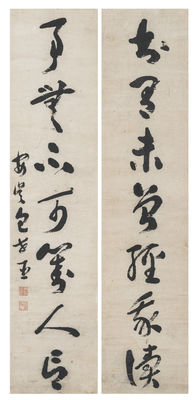 書有未曾經我讀
事無不可對人言
安吳包世臣